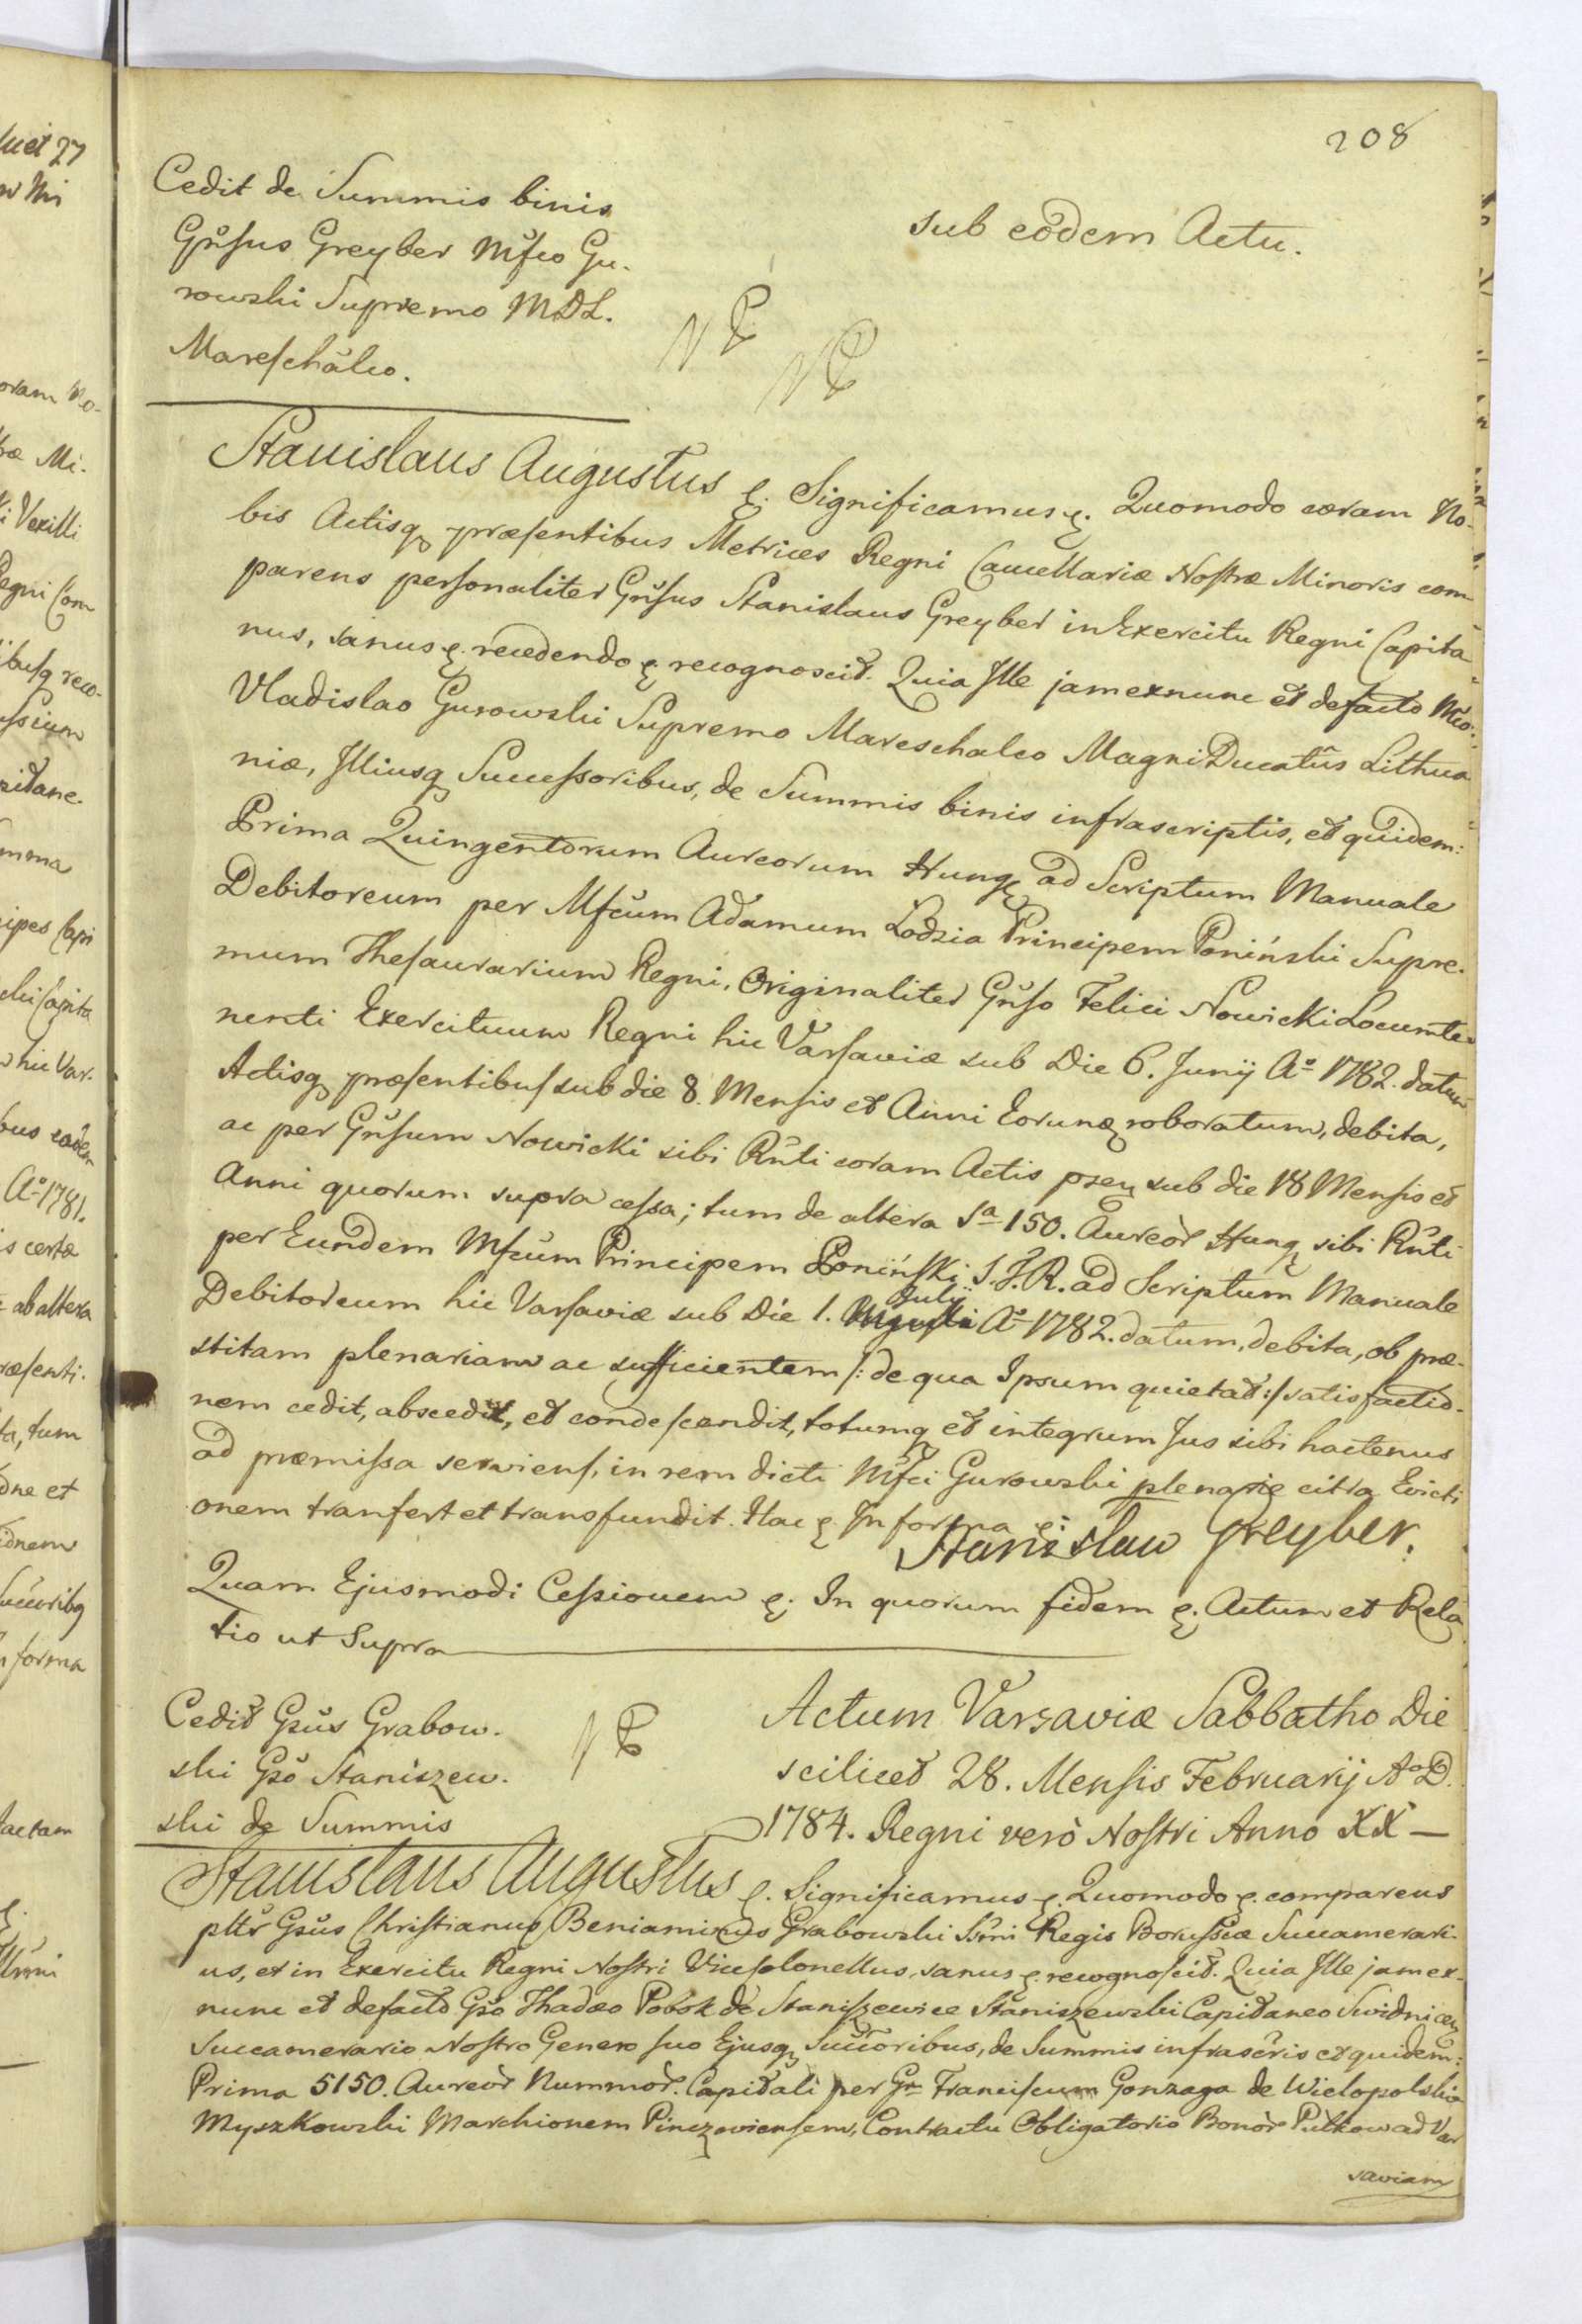 208
Cedit de Summis binis
Gnr̃sus Greyber Mfco Gu-
rowski Supremo M.D.L.
Mareschalco.
sub eodem Actu.
Stanislaus Augustus &. Significamus &. Quomodo coram No-
bis Actisq præsentibus Metrices Regni Cancellariæ Nostræ Minoris com-
parens personaliter Gnr̃sus Stanislaus Greyber in Exercitu Regni Capita-
nus, sanus &. recedendo &. recognoscit. Quia Ille jam exnunc et defacto Mco.
Vladislao Gurowski Supremo Mareschalco Magni Ducatûs Lithua-
niæ, Illiusq Successoribus, de Summis binis infrascriptis, et quidem:
Prima Quingentorum Aureorum Hung ad Scriptum Manuale
Debitoreum per Mfcum Adamum Lodzia Principem Poniński Supre-
mum Thesaurarium Regni, Originaliter Gnr̃so Felici Nowicki Locumte-
nenti Exercituum Regni hic Varsaviæ sub Die 6. Junij Aº 1782. datum
Actisq præsentibus sub die 8. Mensis et Anni Eorunq roboratum, debita,
ac per Gnr̃sum Nowicki sibi Rñti coram Actis psen sub die 18 Mensis et
Anni quorum supra cessa; tum de altera Sª 150. Aureor̃ Hung sibi Rñti
per Eundem Mfcum Principem Poniński S.T.R. ad Scriptum Manuale
Debitoreum hic Varsaviæ sub Die 1. Julij Aº 1782. datum, debita, ob præ-
stitam plenariam ac sufficientem /: de qua Ipsum quietat :/ satisfactio-
nem cedit, abscedit, et condescendit, totumq et integrum Jus sibi hactenus
ad præmissa serviens, in rem dicti Mfci Gurowski plenarie citra Evicti
onem tranfert et transfundit. Hac &. In forma &:
Stanisław Greyber.
Quam Ejusmodi Cessionem &. In quorum fidem &. Actum et Rela
tio ut Supra
Cedit Gsũs Grabow-
ski Gsõ Staniszew-
ski de Summis
Actum Varsaviæ Sabbatho Die
scilicet 28. Mensis Februarij Aº D.
1784. Regni verò Nostri Anno XX —
Stanislaus Augustus &. Significamus &. Quomodo &. comparens
pltr̃ Gsũs Christianus Beniaminus Grabowski Ssm̃i Regis Borussiæ Succamerari-
us, et in Exercitu Regni Nostri Vicecolonellus, sanus &. recognoscit. Quia Ille jam ex-
nunc et defacto Gsõ Thadæo Pobok de Staniszewice Staniszewski Capitaneo Swidnicen
Succamerario Nostro Genero suo Ejusq Succ̃oribus, de Summis infrascr̃is et quidem:
Prima 5150. Aureor̃ Nummor̃. Capitali per Gr̃ Franciscum Gonzaga de Wielopolskie
Myszkowski Marchionem Pinczoviensem, Contractu Obligatorio Bonor̃ Pulkow ad Var
saviam